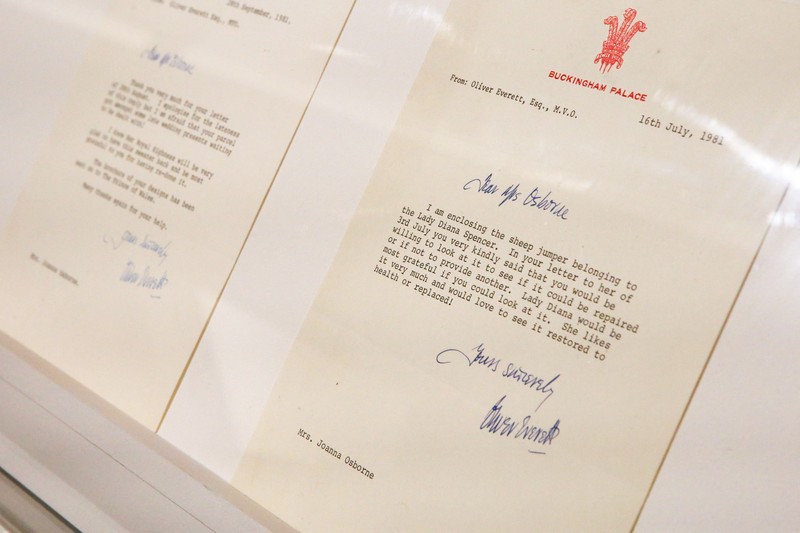 19th September, 1981.
Oliver Everett Esq., MVO.
Dear Mrs Osborne
Thank you very much for your letter
of 3rd August. I apologise for the lateness
of this reply but I am afraid that your parcel
got amongst some late wedding presents waiting
to be dealt with!
I know Her Royal Highness will be very
glad to have this sweater back and be most
grateful to you for having re-done it.
The brochure of your designs has been
sent on to The Prince of Wales.
Many thanks again for your help.
Yours sincerely
Oliver Everett
Mrs. Joanna Osborne.
BUCKINGHAM PALACE
From: Oliver Everett, Esq., M.V.O.
16th July, 1981
Dear Mrs Osborne
I am enclosing the sheep jumper belonging to
the Lady Diana Spencer. In your letter to her of
3rd July you very kindly said that you would be
willing to look at it to see if it could be repaired
or if not to provide another. Lady Diana would be
most grateful if you could look at it. She likes
it very much and would love to see it restored to
health or replaced!
Yours sincerely
Oliver Everett
Mrs. Joanna Osborne